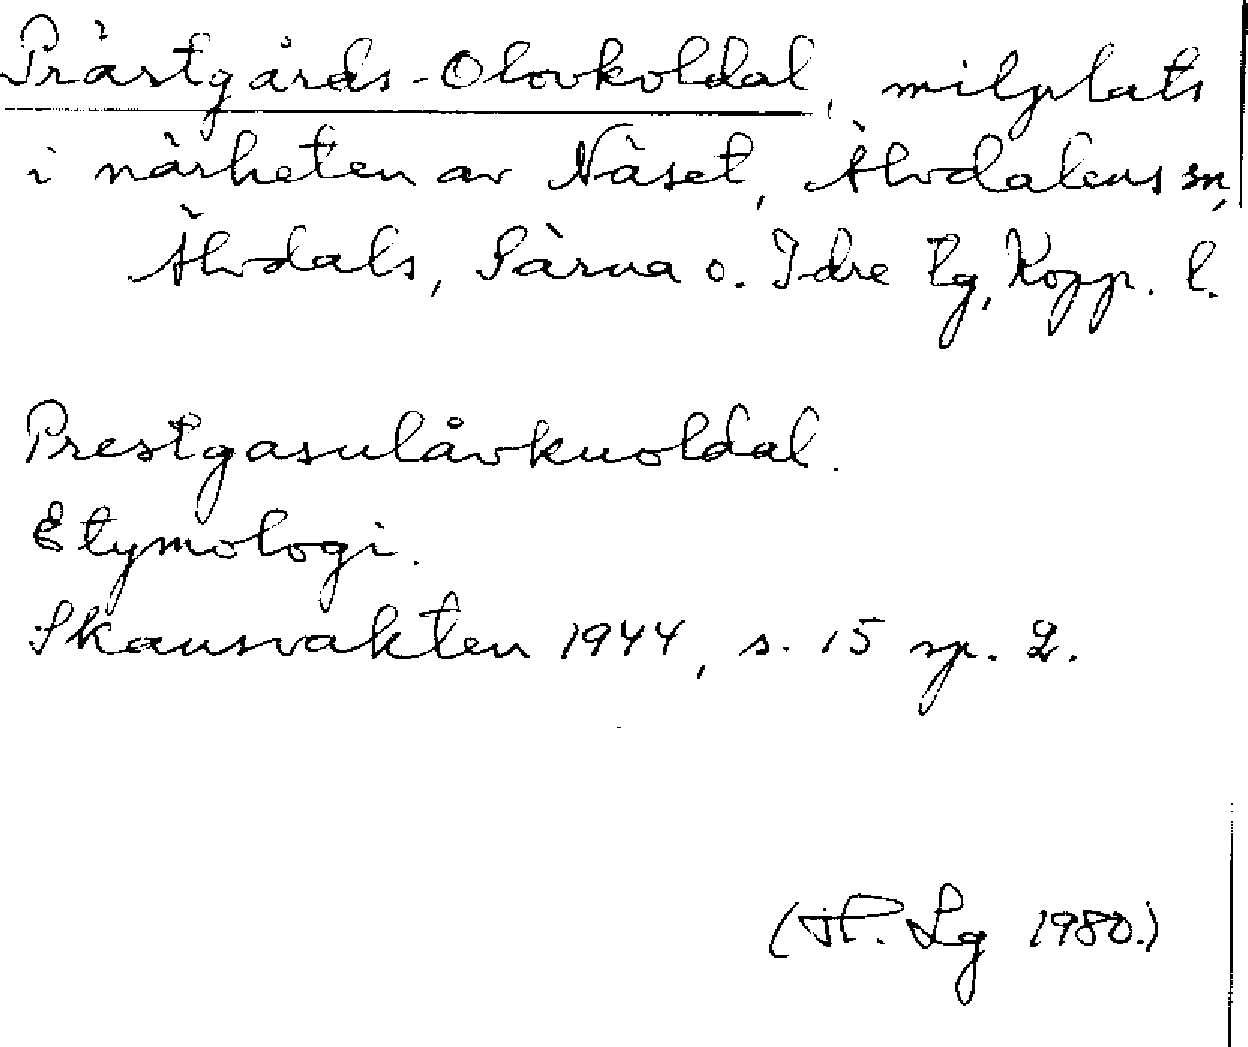 Prästgårds-Olovkoldal, milplats
i närheten av Näset, Älvdalens sn,
Älvdals, Särna o. Idre tg, Kopp. l.
Prestgasulåvkuoldal.
Etymologi.
Skansvakten 1944, s. 15 sp. 2.
(H. Lg 1980.)